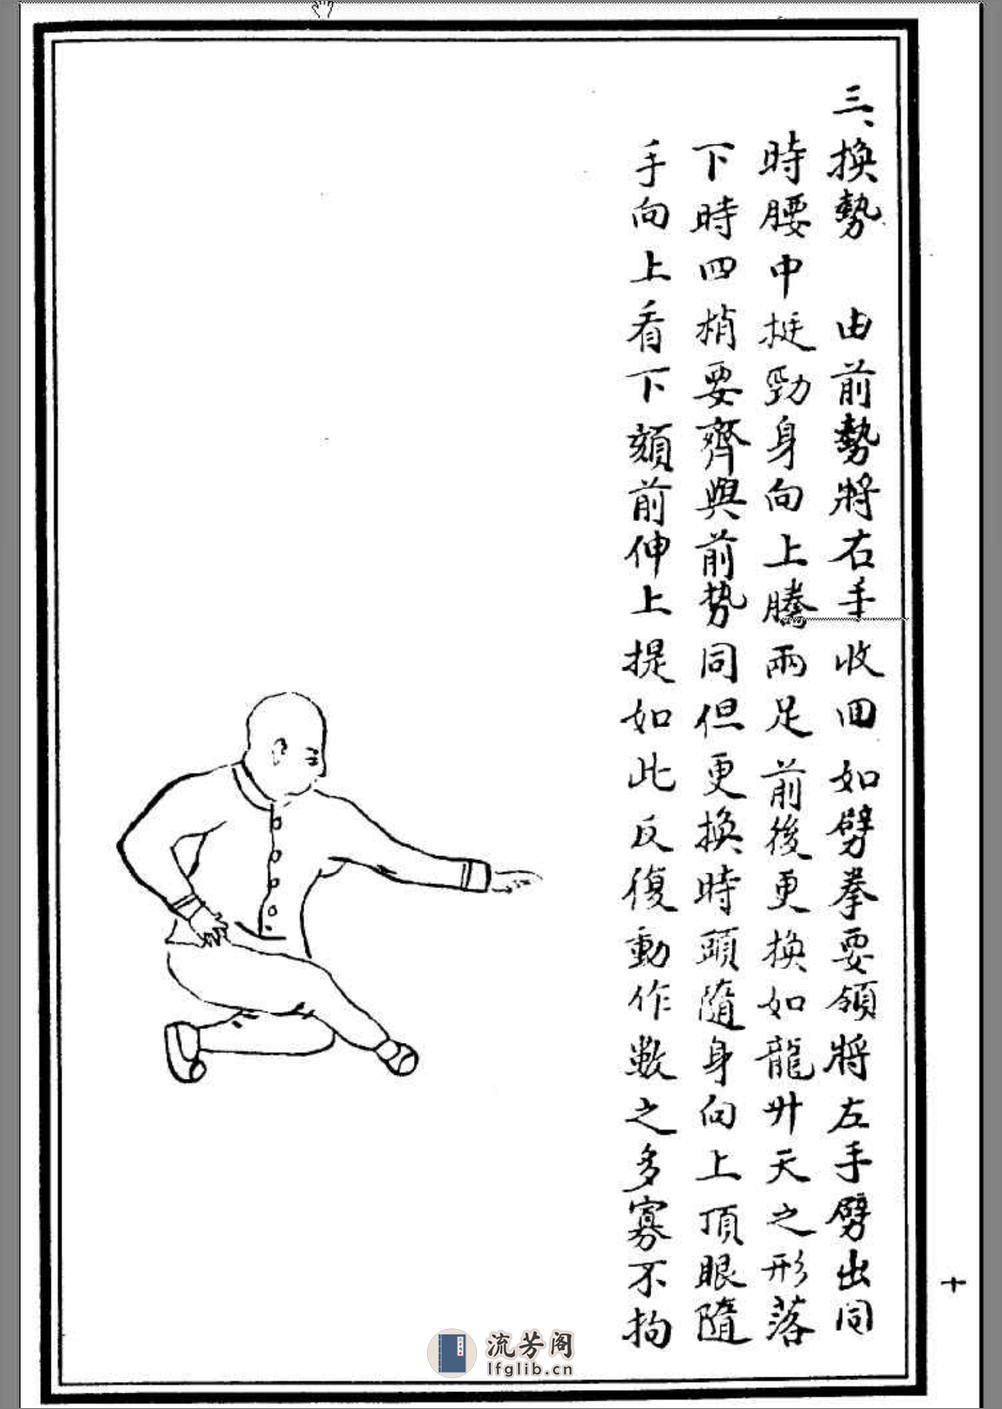 三、換勢　由前勢將右手收回如劈拳要領將左手劈出同
時腰中挺勁身向上騰兩足前後更換如龍升天之形落
下時四梢要齊與前勢同但更換時頭隨身向上頂眼隨
手向上看下頦前伸上提如此反復動作數之多寡不拘
十
流芳阁
lfglib.cn